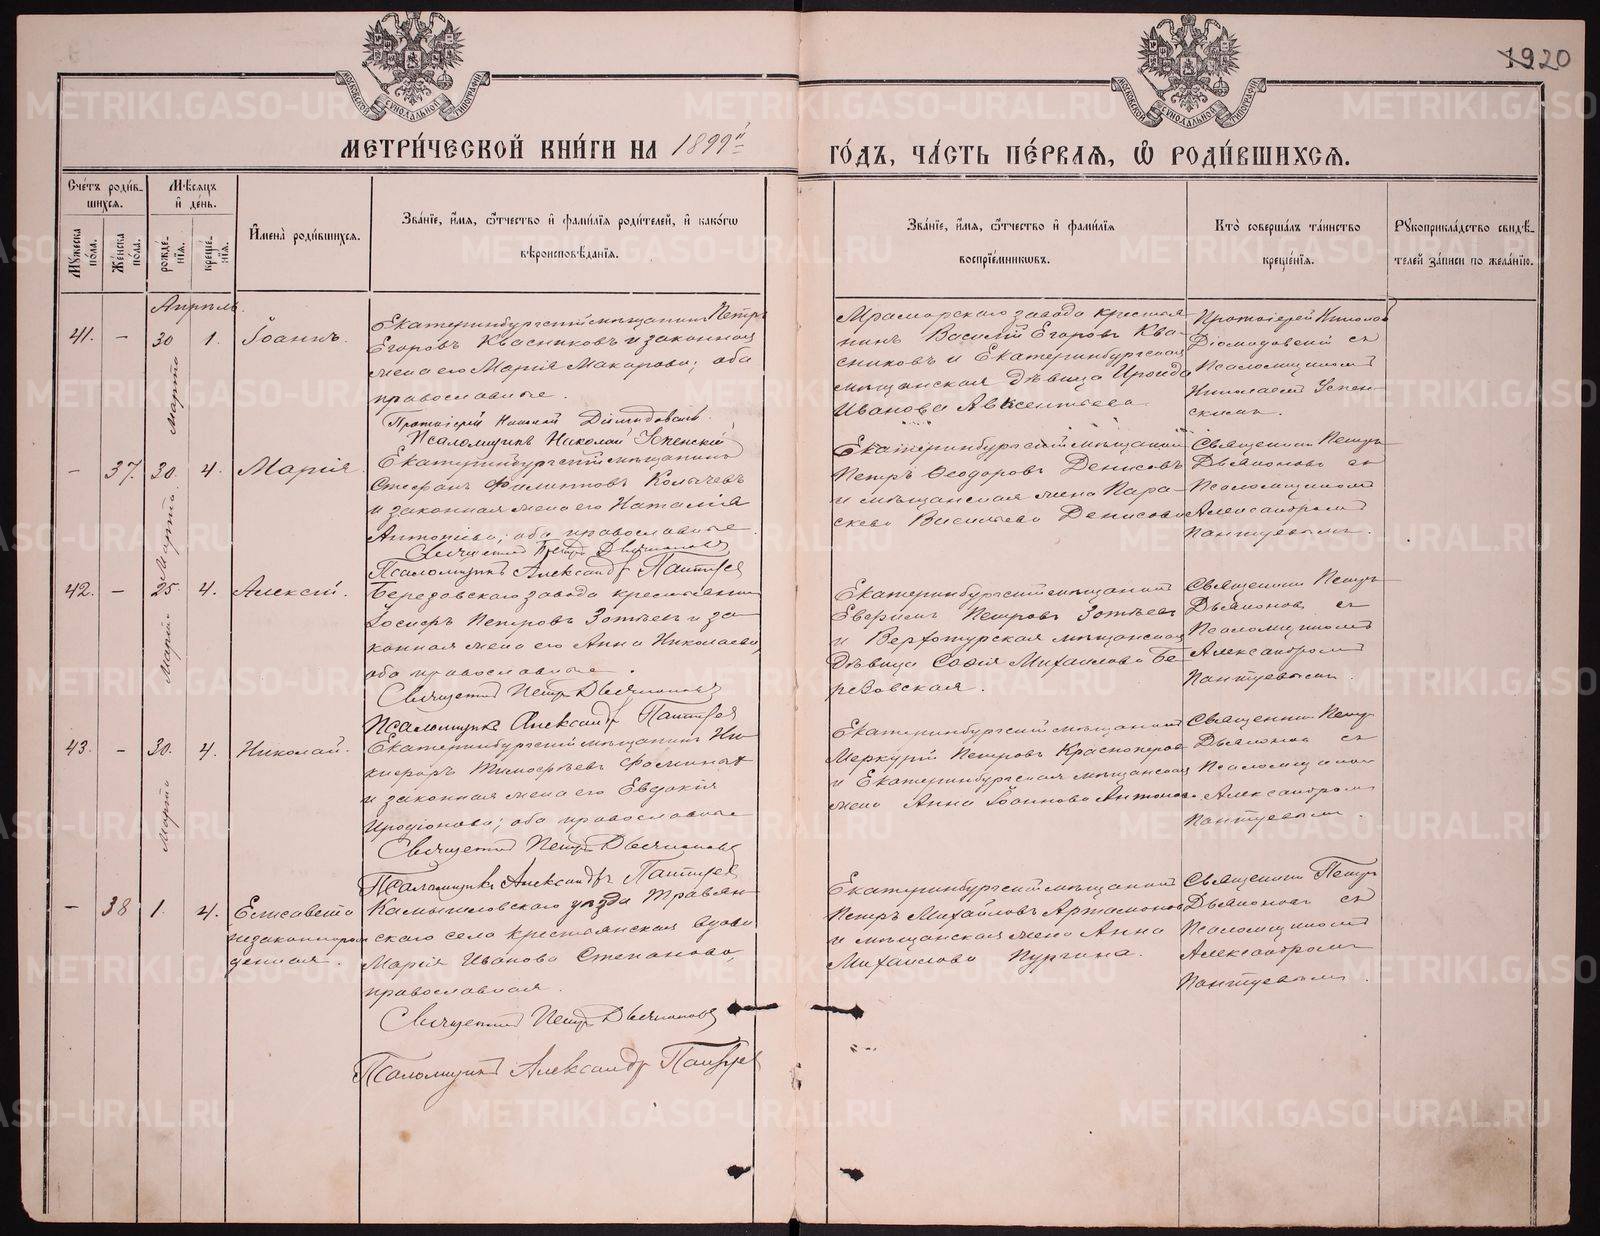 1920
МЕТРИ́ЧЕСКОЙ КНИ́ГИ НА 1899й
ГО́ДЪ, ЧА́СТЬ ПЕ́РВАЯ, Ѽ РОДИ́ВШИХСЯ.
Сче́тъ роди́в-
шихся.
Мꙋ́жеска по́ла.
Же́нска по́ла.
Мѣ́сяцъ
и҆ де́нь.
рожде́-
нїя.
креще́-
нїя.
И҆мена̀ роди́вшихся.
Зва́нїе, и҆́мя, ѻ҆́тчество и҆ фами́лїя роди́телей, и҆ како́гѡ
вѣроисповѣ́данїя.
Зва́нїе, и҆́мя, ѻ҆́тчество и҆ фами́лїя
воспрїе́мникѡвъ.
Кто̀ соверша́лъ та́инство
креще́нїя.
Рꙋкоприкла́дство свидѣ́-
телей за́писи по жела́нїю.
Апрѣль.
41. – 30 Марта 1. Іоаннъ.
Екатеринбургскій мѣщанинъ Петръ
Егоровъ Квасниковъ и законная
жена его Марія Макарова; оба
православные.
Протоіерей Николай Діомидовскій.
Псаломщикъ Николай Успенскій
Мраморскаго завода крестья-
нинъ Василій Егоровъ Ква-
сниковъ и Екатеринбургская
мѣщанская дѣвица Ироида
Иванова Авксентьева
Протоіерей Николай
Діомидовскій съ
Псаломщикомъ
Николаемъ Успен-
скимъ.
– 37. 30. Марта 4. Марія
Екатеринбургскій мѣщанинъ
Стефанъ Филипповъ Колычевъ
и законная жена его Наталія
Антоніева; оба православные.
Священникъ Петръ Дьяконовъ
Псаломщикъ Александръ Пантуев
Екатеринбургскій мѣщанинъ
Петръ Ѳеодоровъ Денисовъ
и мѣщанская жена Пара-
скева Васильева Денисова
Священникъ Петръ
Дьяконовъ съ
Псаломщикомъ
Александромъ
Пантуевымъ.
42. – 25. Марта 4. Алексій.
Березовскаго завода крестьянинъ
Іосифъ Петровъ Зотѣевъ и за-
конная жена его Анна Николаева,
оба православные.
Священникъ Петръ Дьяконовъ
Псаломщикъ Александръ Пантуев
Екатеринбургскій мѣщанинъ
Евфимъ Петровъ Зотѣевъ
и Верхотурская мѣщанская
дѣвица Софія Михаилова Бе-
резовская.
Священникъ Петръ
Дьяконовъ съ
Псаломщикомъ
Александромъ
Пантуевымъ.
43. – 30. Марта 4. Николай.
Екатеринбургскій мѣщанинъ Ни-
кифоръ Тимофѣевъ Фоминых
и законная жена его Евдокія
Иродіонова; оба православные
Священникъ Петръ Дьяконовъ
Псаломщикъ Александръ Пантуев
Екатеринбургскій мѣщанинъ
Меркурій Петровъ Красноперов
и Екатеринбургская мѣщанская
жена Анна Іоаннова Антонова
Священникъ Петръ
Дьяконовъ съ
Псаломщикомъ
Александромъ
Пантуевымъ.
– 38 1. 4. Елисавета
незаконнорож-
денная.
Камышловскаго уѣзда Травян-
скаго села крестьянская вдова
Марія Иванова Степанова,
православная.
Священникъ Петръ Дьяконовъ
Псаломщикъ Александръ Пантуев
Екатеринбургскій мѣщанинъ
Петръ Михайловъ Артамоновъ
и мѣщанская жена Анна
Михаилова Пургина.
Священникъ Петръ
Дьяконовъ съ
Псаломщикомъ
Александромъ
Пантуевымъ.
METRIKI.GASO-URAL.RU